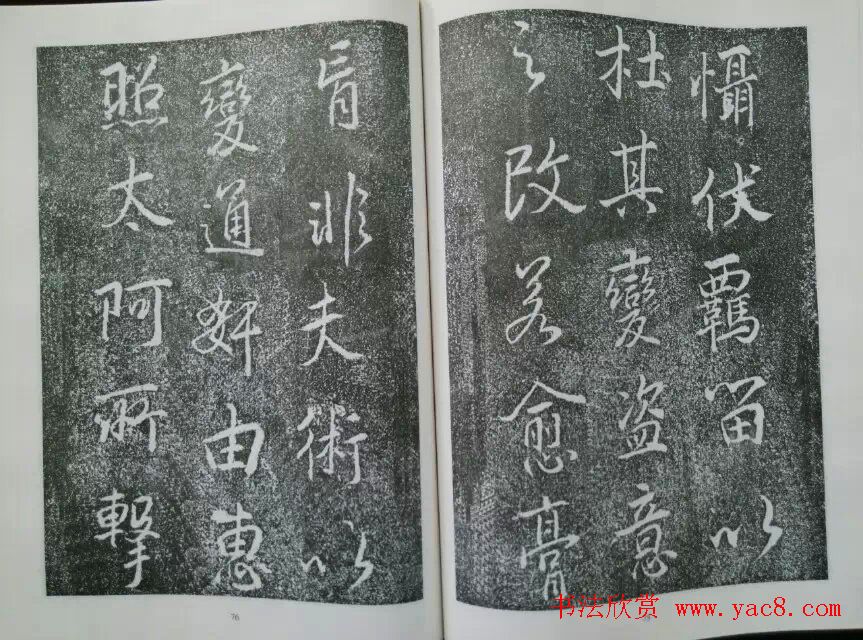 懾伏羈留以
杜其變盗意
之改若愈膏
肓非夫術以
變通奸由惠
照太阿所擊
76
书法欣赏 www.yac8.com